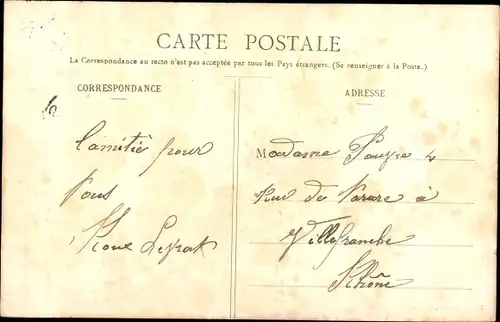 CARTE POSTALE
La Correspondance au recto n'est pas acceptée par tous les Pays étrangers. (Se renseigner à la Poste.)
CORRESPONDANCE
ADRESSE
L'amitié pour
Madame
tous
Rue de Tarare à
Villefranche
Rhône